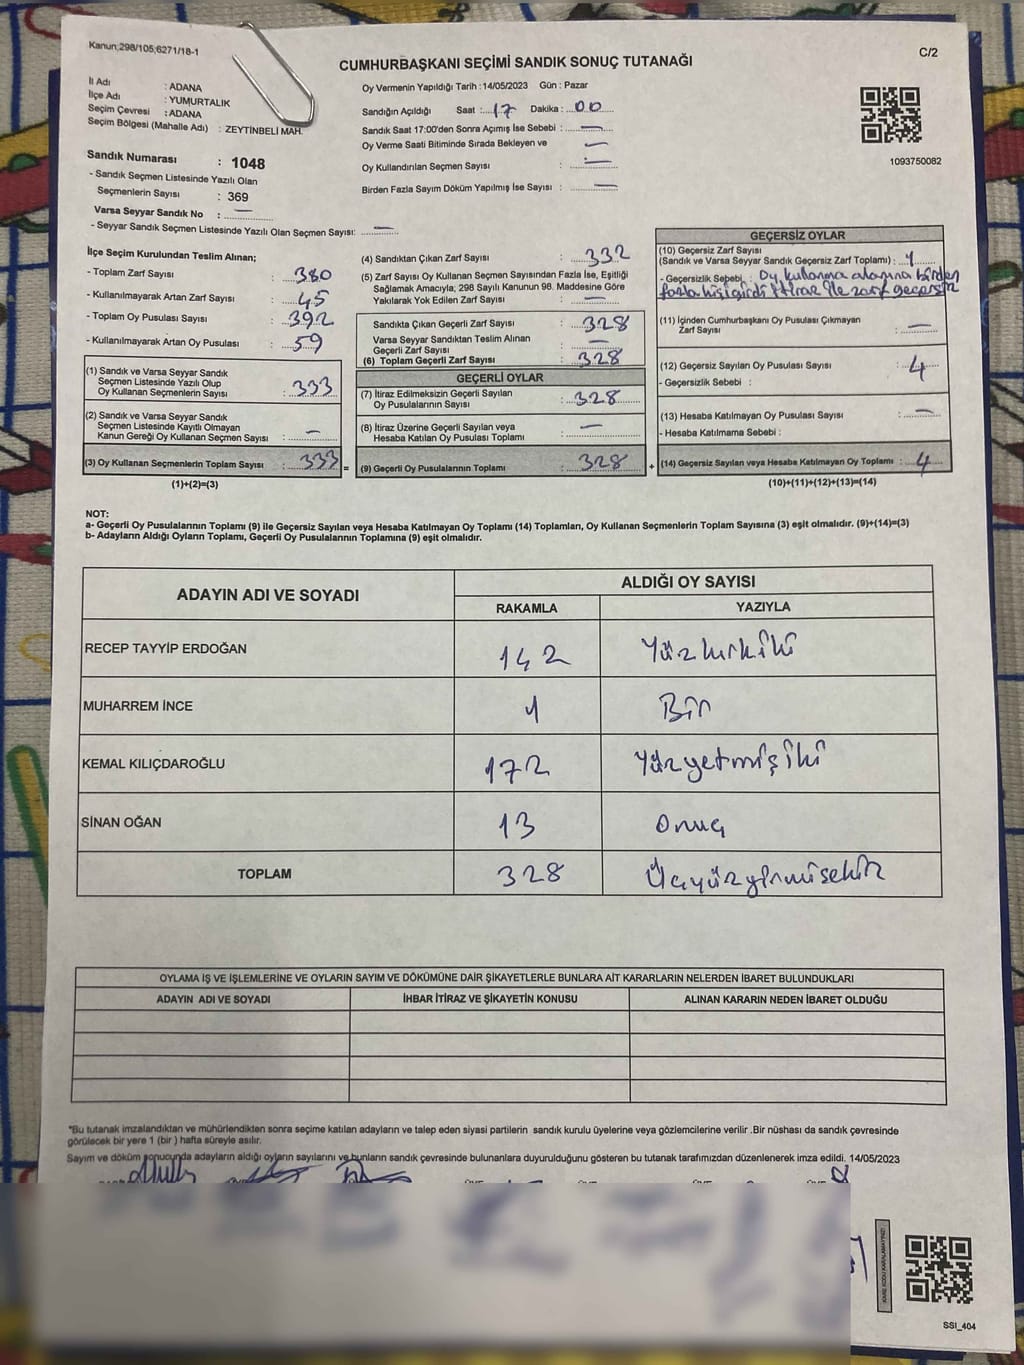 Kanun;298/105;6271/18-1
C/2
CUMHURBAŞKANI SEÇİMİ SANDIK SONUÇ TUTANAĞI
İl Adı : ADANA
İlçe Adı : YUMURTALIK
Seçim Çevresi : ADANA
Seçim Bölgesi (Mahalle Adı) : ZEYTİNBELİ MAH.
Sandık Numarası : 1048
- Sandık Seçmen Listesinde Yazılı Olan
Seçmenlerin Sayısı : 369
Varsa Seyyar Sandık No : —
- Seyyar Sandık Seçmen Listesinde Yazılı Olan Seçmen Sayısı: —
Oy Vermenin Yapıldığı Tarih :14/05/2023 Gün : Pazar
Sandığın Açıldığı Saat : 17 Dakika : 00
Sandık Saat 17:00'den Sonra Açımış İse Sebebi : —
Oy Verme Saati Bitiminde Sırada Bekleyen ve —
Oy Kullandırılan Seçmen Sayısı : —
Birden Fazla Sayım Döküm Yapılmış İse Sayısı : —
1093750082
İlçe Seçim Kurulundan Teslim Alınan;
- Toplam Zarf Sayısı : 380
- Kullanılmayarak Artan Zarf Sayısı : 45
- Toplam Oy Pusulası Sayısı : 392
- Kullanılmayarak Artan Oy Pusulası : 59
(1) Sandık ve Varsa Seyyar Sandık
Seçmen Listesinde Yazılı Olup
Oy Kullanan Seçmenlerin Sayısı : 333
(2) Sandık ve Varsa Seyyar Sandık
Seçmen Listesinde Kayıtlı Olmayan
Kanun Gereği Oy Kullanan Seçmen Sayısı : —
(3) Oy Kullanan Seçmenlerin Toplam Sayısı : 333 =
(1)+(2)=(3)
(4) Sandıktan Çıkan Zarf Sayısı : 332
(5) Zarf Sayısı Oy Kullanan Seçmen Sayısından Fazla İse, Eşitliği
Sağlamak Amacıyla; 298 Sayılı Kanunun 98. Maddesine Göre
Yakılarak Yok Edilen Zarf Sayısı : —
Sandıkta Çıkan Geçerli Zarf Sayısı : 328
Varsa Seyyar Sandıktan Teslim Alınan
Geçerli Zarf Sayısı : —
(6) Toplam Geçerli Zarf Sayısı : 328
GEÇERLİ OYLAR
(7) İtiraz Edilmeksizin Geçerli Sayılan
Oy Pusulalarının Sayısı : 328
(8) İtiraz Üzerine Geçerli Sayılan veya
Hesaba Katılan Oy Pusulası Toplamı : —
(9) Geçerli Oy Pusulalarının Toplamı : 328 +
GEÇERSİZ OYLAR
(10) Geçersiz Zarf Sayısı
(Sandık ve Varsa Seyyar Sandık Geçersiz Zarf Toplamı) : 1
- Geçersizlik Sebebi : Oy kullanma alanına birden
fazla kişi girdi itiraz ile zarf geçersiz
(11) İçinden Cumhurbaşkanı Oy Pusulası Çıkmayan
Zarf Sayısı : —
(12) Geçersiz Sayılan Oy Pusulası Sayısı : 4
- Geçersizlik Sebebi :
(13) Hesaba Katılmayan Oy Pusulası Sayısı : —
- Hesaba Katılmama Sebebi :
(14) Geçersiz Sayılan veya Hesaba Katılmayan Oy Toplamı : 4
(10)+(11)+(12)+(13)=(14)
NOT:
a- Geçerli Oy Pusulalarının Toplamı (9) ile Geçersiz Sayılan veya Hesaba Katılmayan Oy Toplamı (14) Toplamları, Oy Kullanan Seçmenlerin Toplam Sayısına (3) eşit olmalıdır. (9)+(14)=(3)
b- Adayların Aldığı Oyların Toplamı, Geçerli Oy Pusulalarının Toplamına (9) eşit olmalıdır.
ADAYIN ADI VE SOYADI
ALDIĞI OY SAYISI
RAKAMLA YAZIYLA
RECEP TAYYİP ERDOĞAN 142 Yüzkırkiki
MUHARREM İNCE 1 Bir
KEMAL KILIÇDAROĞLU 172 Yüzyetmişiki
SİNAN OĞAN 13 Onüç
TOPLAM 328 Üçyüzyirmisekiz
OYLAMA İŞ VE İŞLEMLERİNE VE OYLARIN SAYIM VE DÖKÜMÜNE DAİR ŞİKAYETLERLE BUNLARA AİT KARARLARIN NELERDEN İBARET BULUNDUKLARI
ADAYIN ADI VE SOYADI İHBAR İTİRAZ VE ŞİKAYETİN KONUSU ALINAN KARARIN NEDEN İBARET OLDUĞU
*Bu tutanak imzalandıktan ve mühürlendikten sonra seçime katılan adayların ve talep eden siyasi partilerin sandık kurulu üyelerine veya gözlemcilerine verilir .Bir nüshası da sandık çevresinde
görülecek bir yere 1 (bir ) hafta süreyle asılır.
Sayım ve döküm sonucunda adayların aldığı oyların sayılarını ve bunların sandık çevresinde bulunanlara duyurulduğunu gösteren bu tutanak tarafımızdan düzenlenerek imza edildi. 14/05/2023
KARE KODU KARALAMAYINIZ!
SSI_404